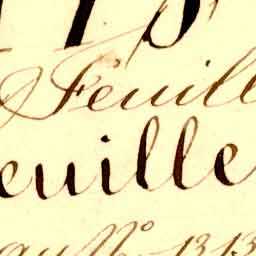 Feuill
euille
au N° 1313